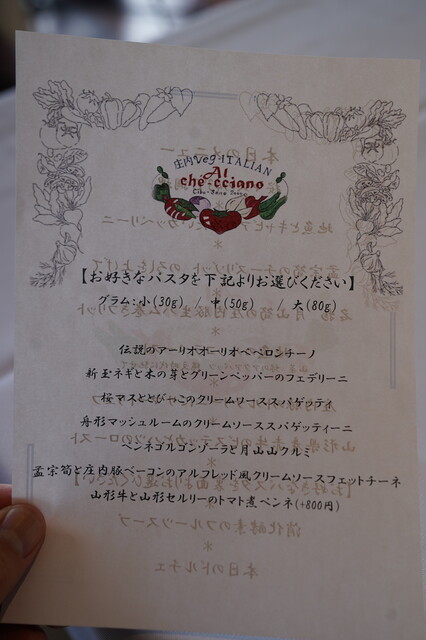 庄内Veg-ITALIAN
Al
chè-cciano
【お好きなパスタを下記よりお選びください】
グラム：小(30g) / 中(50g) / 大(80g)
伝説のアーリオオーリオペペロンチーノ
新玉ネギと木の芽とグリーンペッパーのフェデリーニ
桜マスととびっこのクリームソーススパゲッティ
舟形マッシュルームのクリームソーススパゲッティーニ
ペンネゴルゴンゾーラと月山山クルミ
孟宗筍と庄内豚ベーコンのアルフレッド風クリームソースフェットチーネ
山形牛と山形セルリーのトマト煮ペンネ(+800円)